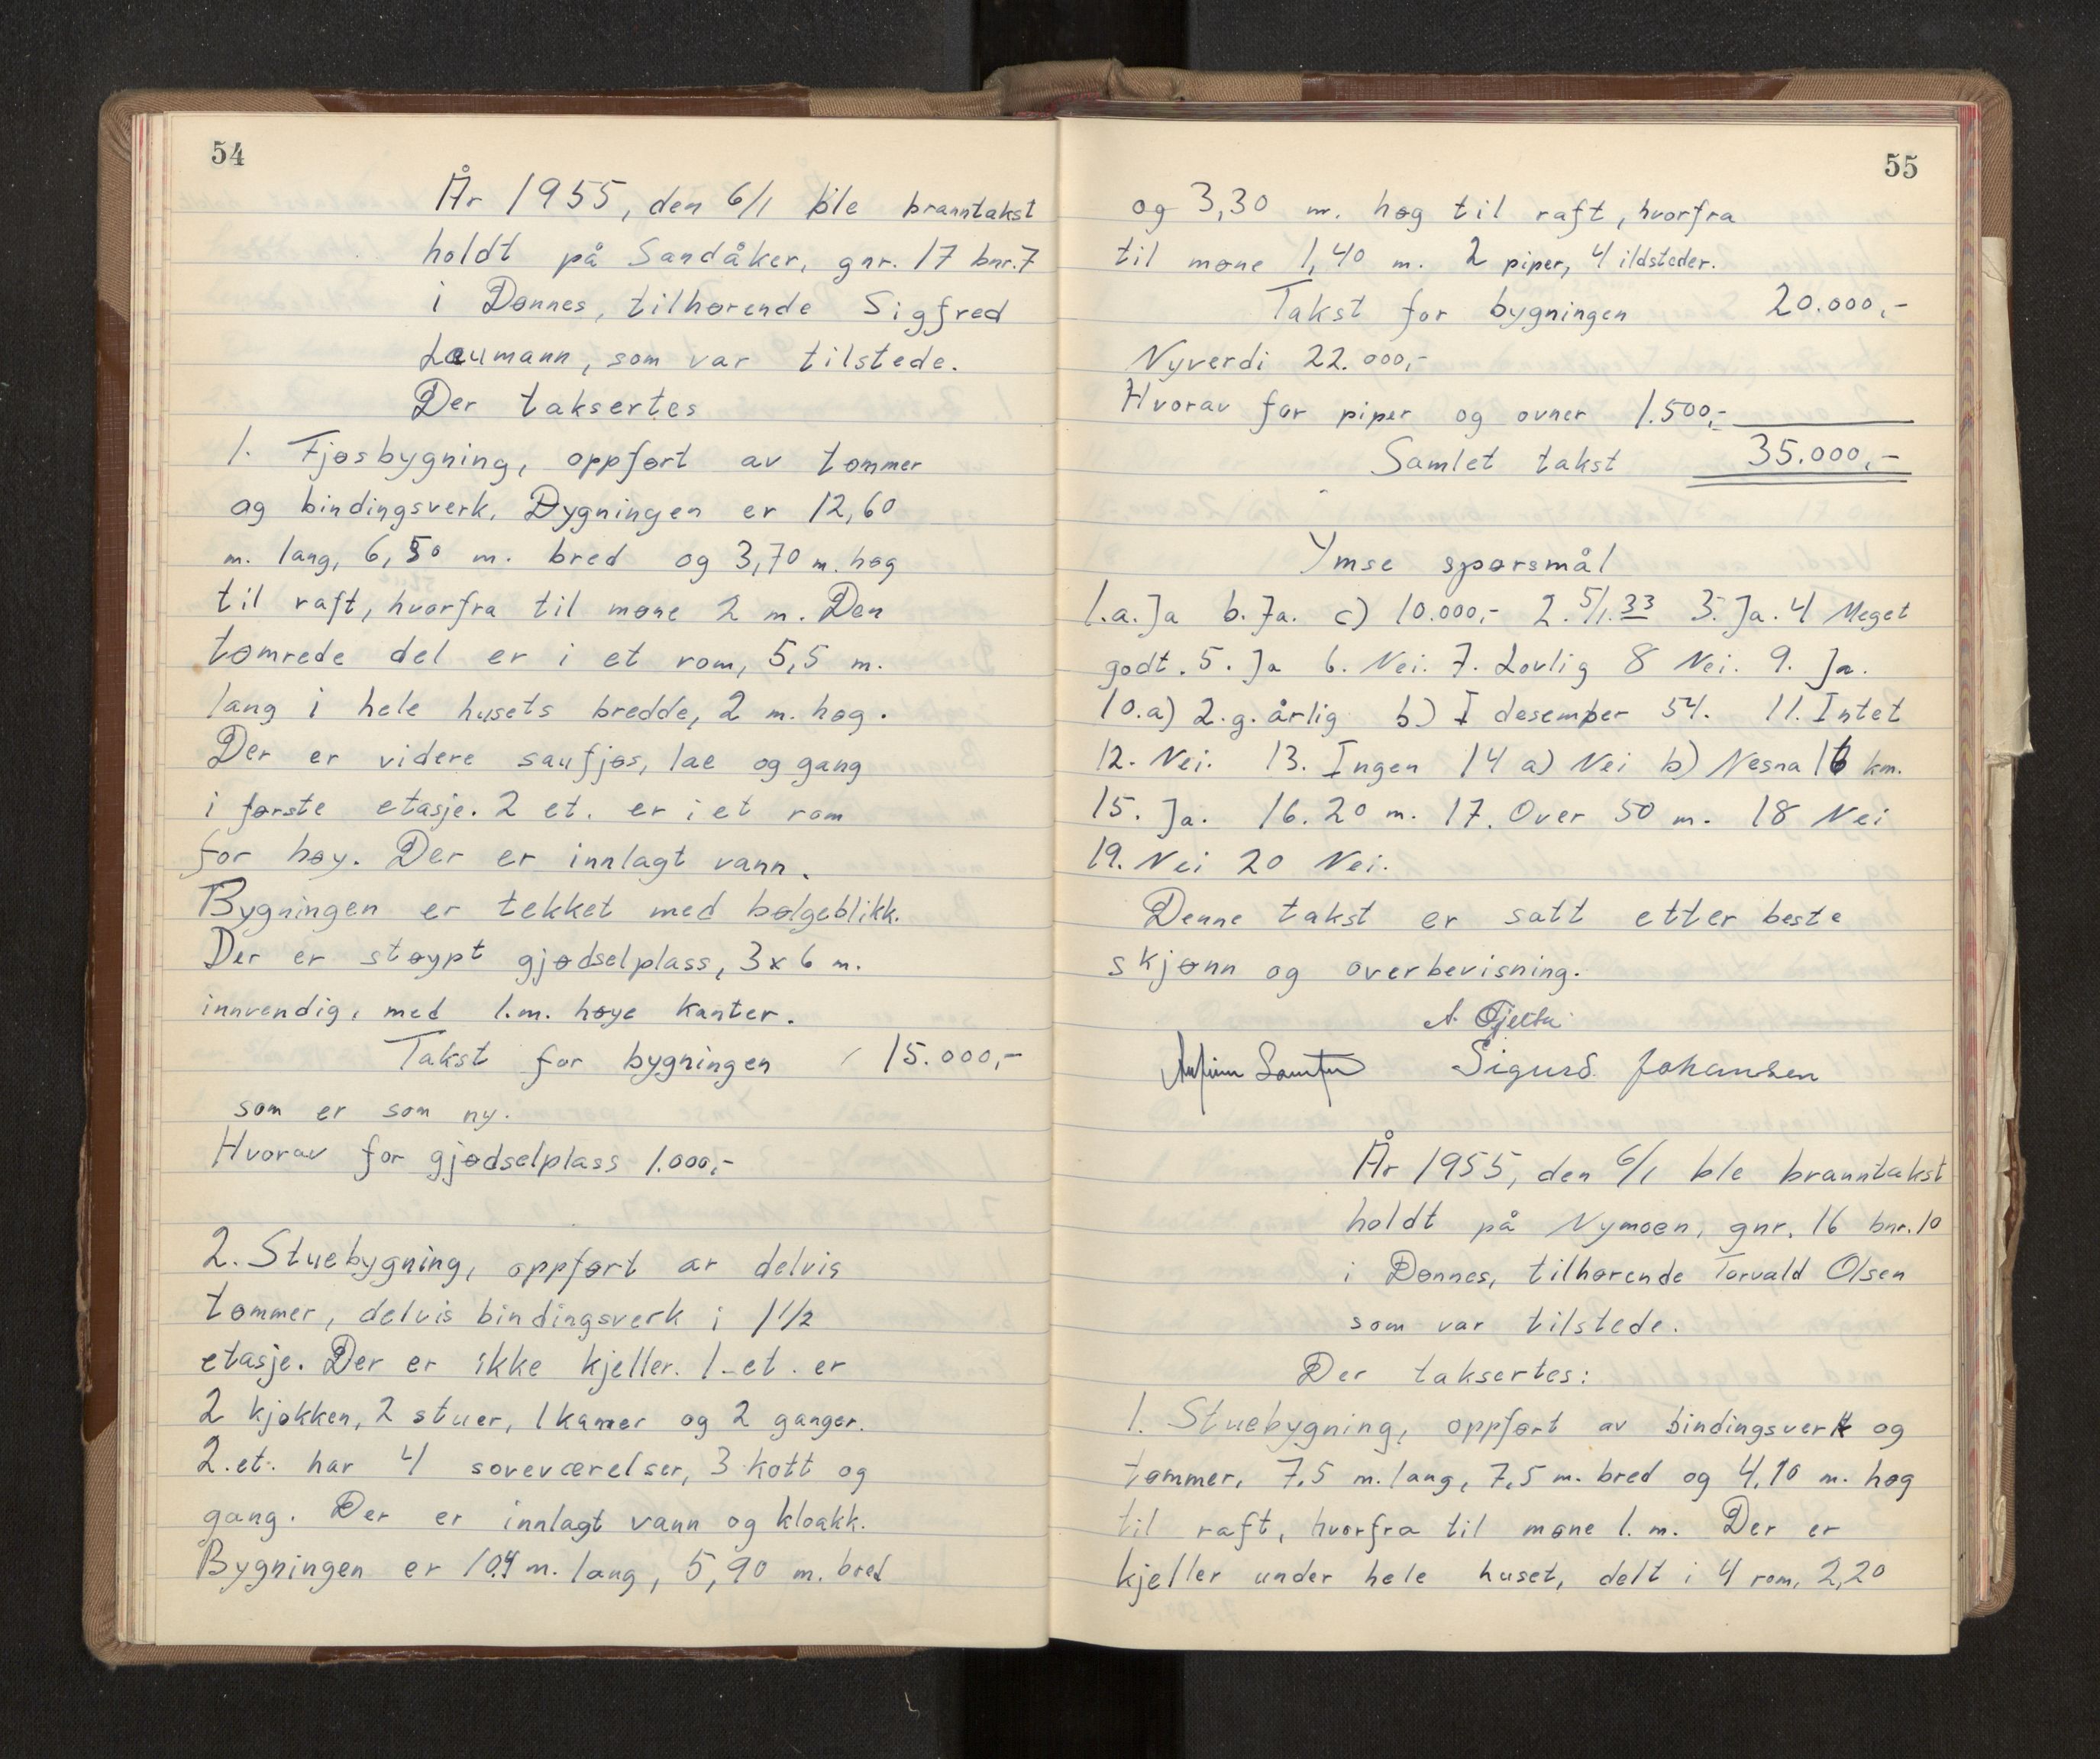 54
År 1955, den 6/1 ble branntakst
holdt på Sandåker, gnr. 17 bnr. 7
i Dønnes, tilhørende Sigfred
Laumann, som var tilstede.
Der taksertes
1. Fjøsbygning, oppført av tømmer
og bindingsverk. Bygningen er 12,60
m. lang, 6,50 m. bred og 3,70 m. høg
til raft, hvorfra til møne 2 m. Den
tømrede del er i et rom, 5,5 m.
lang i hele husets bredde, 2 m. høg.
Der er videre saufjøs, lae og gang
i første etasje. 2 et. er i et rom
for høy. Der er innlagt vann.
Bygningen er tekket med bølgeblikk.
Der er støypt gjødselplass, 3 x 6 m.
innvendig, med 1.m. høye kanter.
Takst for bygningen 15.000,-
som er som ny.
Hvorav for gjødselplass 1.000,-
2. Stuebygning, oppført av delvis
tømmer, delvis bindingsverk i 1 1/2
etasje. Der er ikke kjeller. 1-et. er
2 kjøkken, 2 stuer, 1 kamer og 2 ganger.
2.et. har 4 soveværelser, 3 kott og
gang. Der er innlagt vann og kloakk.
Bygningen er 10,4 m. lang, 5,90 m. bred
55
og 3,30 m. høg til raft, hvorfra
til møne 1,40 m. 2 piper, 4 ildsteder.
Takst for bygningen 20.000,-
Nyverdi 22.000,-
Hvorav for piper og ovner 1.500,-
Samlet takst 35.000,-
Ymse spørsmål
1.a. Ja b. Ja. c) 10.000,- 2. 5/1.33 3. Ja. 4 Meget
godt. 5. Ja 6. Nei. 7. Lovlig 8 Nei. 9. Ja.
10.a) 2.g. årlig b) I desember 54. 11. Intet
12. Nei. 13. Ingen 14 a) Nei b) Nesna 16 km.
15. Ja. 16. 20 m. 17. Over 50 m. 18 Nei
19. Nei 20 Nei.
Denne takst er satt etter beste
skjønn og overbevisning.
A.
Sigurd Johansen
År 1955, den 6/1 ble branntakst
holdt på Nymoen, gnr. 16 bnr. 10
i Dønnes, tilhørende Torvald Olsen
som var tilstede.
Der taksertes:
1. Stuebygning, oppført av bindingsverk og
tømmer, 7,5 m. lang, 7,5 m. bred og 4,10 m. høg
til raft, hvorfra til møne 1. m. Der er
kjeller under hele huset, delt i 4 rom, 2,20